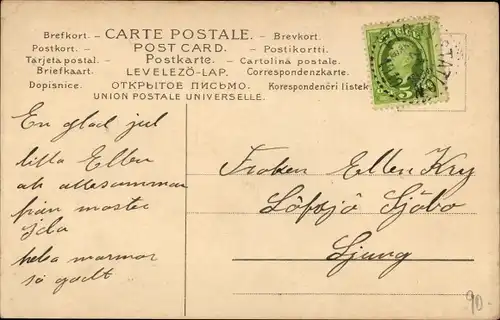 Brefkort. – CARTE POSTALE. – Brevkort.
Postkort. – POST CARD. – Postikortti.
Tarjeta postal. – Postkarte. – Cartolina postale.
Briefkaart. LEVELEZŐ-LAP. Correspondenzkarte.
Dopisnice. ОТКРЫТОЕ ПИСЬМО. Korespondenčni listek.
UNION POSTALE UNIVERSELLE.
SVERIGE
5
En glad jul
lilla Ellen
och allesamman
från moster
Ida
hela marmor
så godt
Fröken Ellen Kry
Löfsjö Sjöbo
Ljung
90